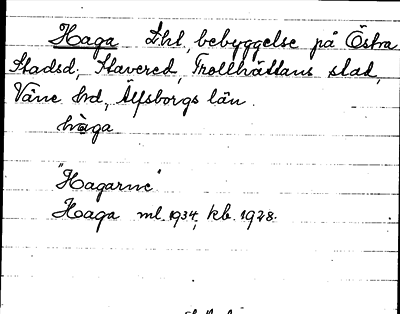 Haga F.hl, bebyggelse på Östra
Stadsd., Stavered, Trollhättans stad,
Väne hd, Älfsborgs län.
hàga
"Hagarne"
Haga ml. 1934, kb. 1928.